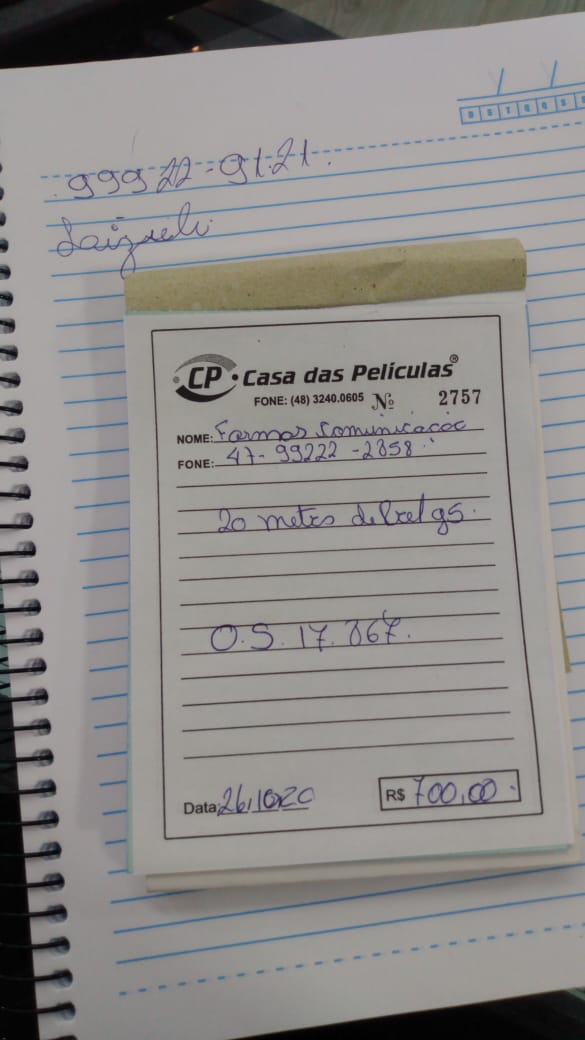 999 22-9121.
D S T Q Q S S
CP • Casa das Películas®
FONE: (48) 3240.0605 Nº 2757
NOME: Formas Comunicação
FONE: 47-99222-2858
20 metros de g5.
O.S. 17.867.
Data: 26.10.20 R$ 700,00